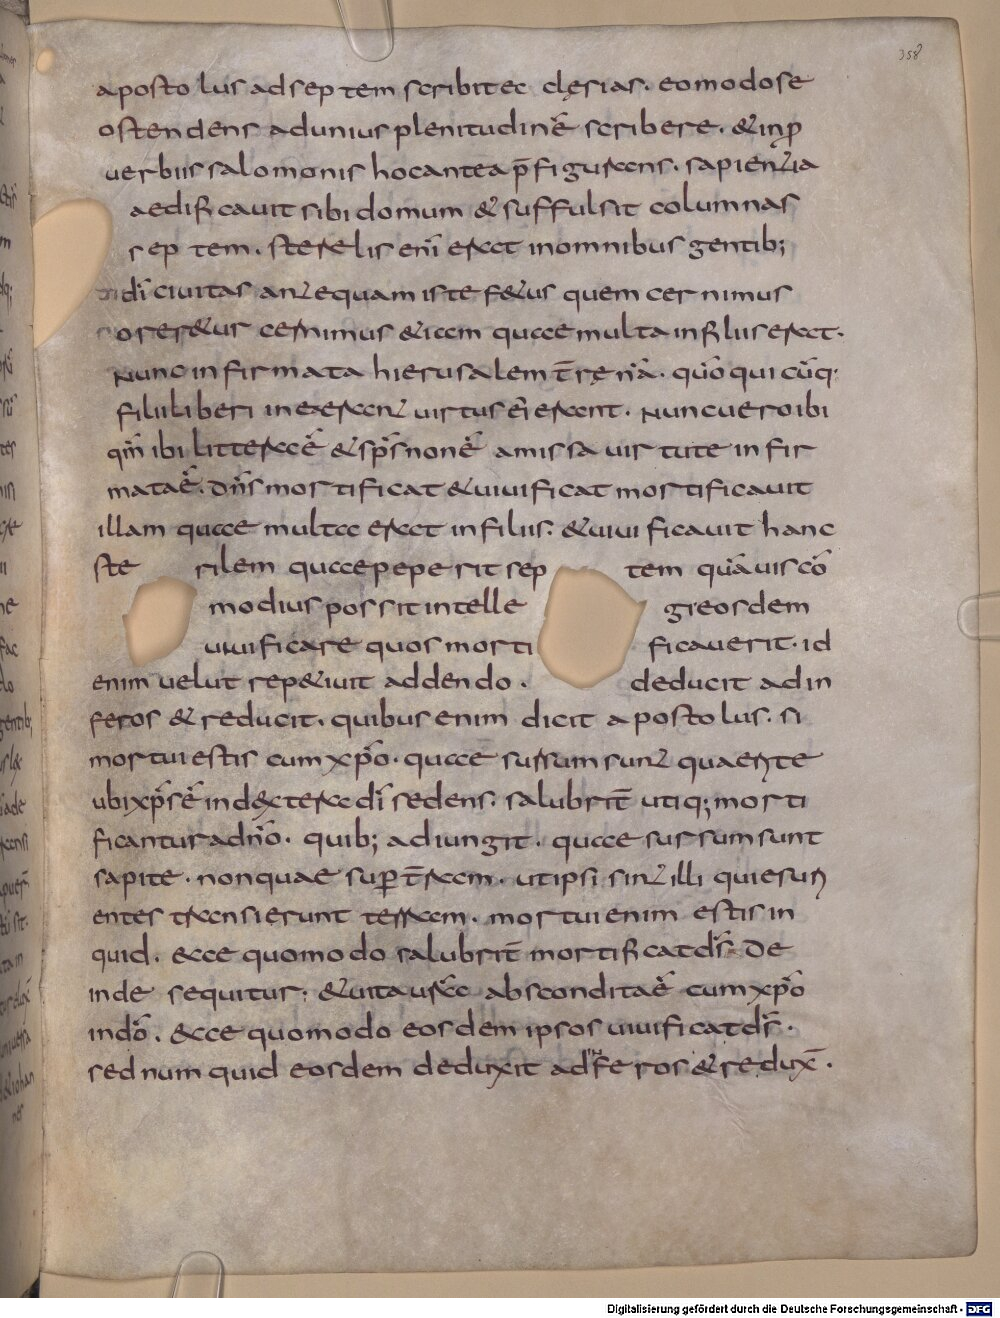 358
apostolus ad septem scribit ecclęsias. eo modo se
ostendens ad unius plenitudinē scribere. & in ꝓ
uerbiis salomonis hoc ante a p̄figurans. sapientia
aedificauit sibi domum & suffulsit columnas
septem. sterelis enī erat in omnibus gentib;
dī ciuitas antequam iste f&us quem cernimus
oreretur cernimus & iam quae multa in filiis erat.
Nunc infirmata hierusalem t̄rena. quō quicūq;
filii liberi in ea erant uirtus eī erant. Nunc uero ibi
qm̄ ibi littera ē & sps̄ non ē amissa uirtute infir
mata ē. dn̄s mortificat & uiuificat mortificauit
illam quae multa erat in filiis. & uiuificauit hanc
sterilem quae peperit septem quāuis cō
modius possit intellegi eosdem
uiuificare quos mortificauerit. id
enim uelut rep&iuit addendo. deducit ad in
feros & reducit. quibus enim dicit apostolus. si
mortui estis cum xp̄o. quae sursum sunt quaerite
ubi xp̄s ē in dextera dī sedens. salubrit̄ utiq; morti
ficantur a dn̄o. quib; adiungit. quae sursum sunt
sapite. non quae sup̄ t̄ram. ut ipsi sint illi qui esuri
entes transierunt terram. mortui enim estis in
quid. ecce quomodo salubrit̄ mortificat ds̄. De
inde sequitur: & uita ur̄a abscondita ē cum xp̄o
in dō. ecce quomodo eosdem ipsos uiuificat ds̄.
sed num quid eosdem deduxit ad inferos & redux̄.
Digitalisierung gefördert durch die Deutsche Forschungsgemeinschaft - DFG